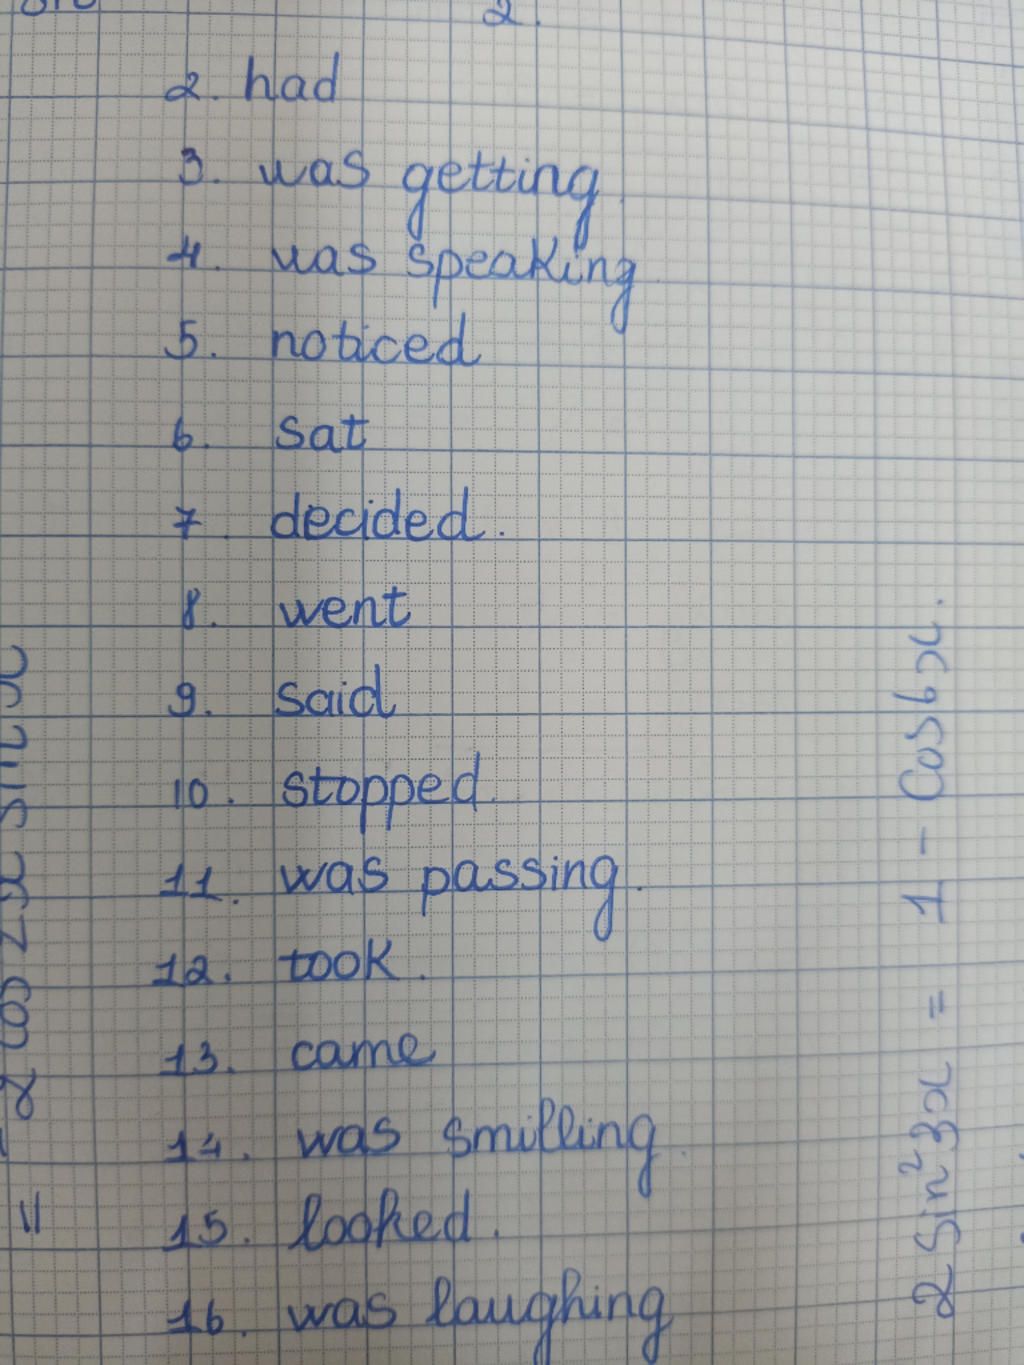 2.
2. had
3. was getting
4. was speaking
5. noticed
6. sat
7. decided.
8. went
9. said
10. stopped.
11. was passing.
12. took.
13. came
14. was smilling.
15. looked.
16. was laughing
2 sin²3x = 1 - cos6x.
= 2 cos 2x sin x